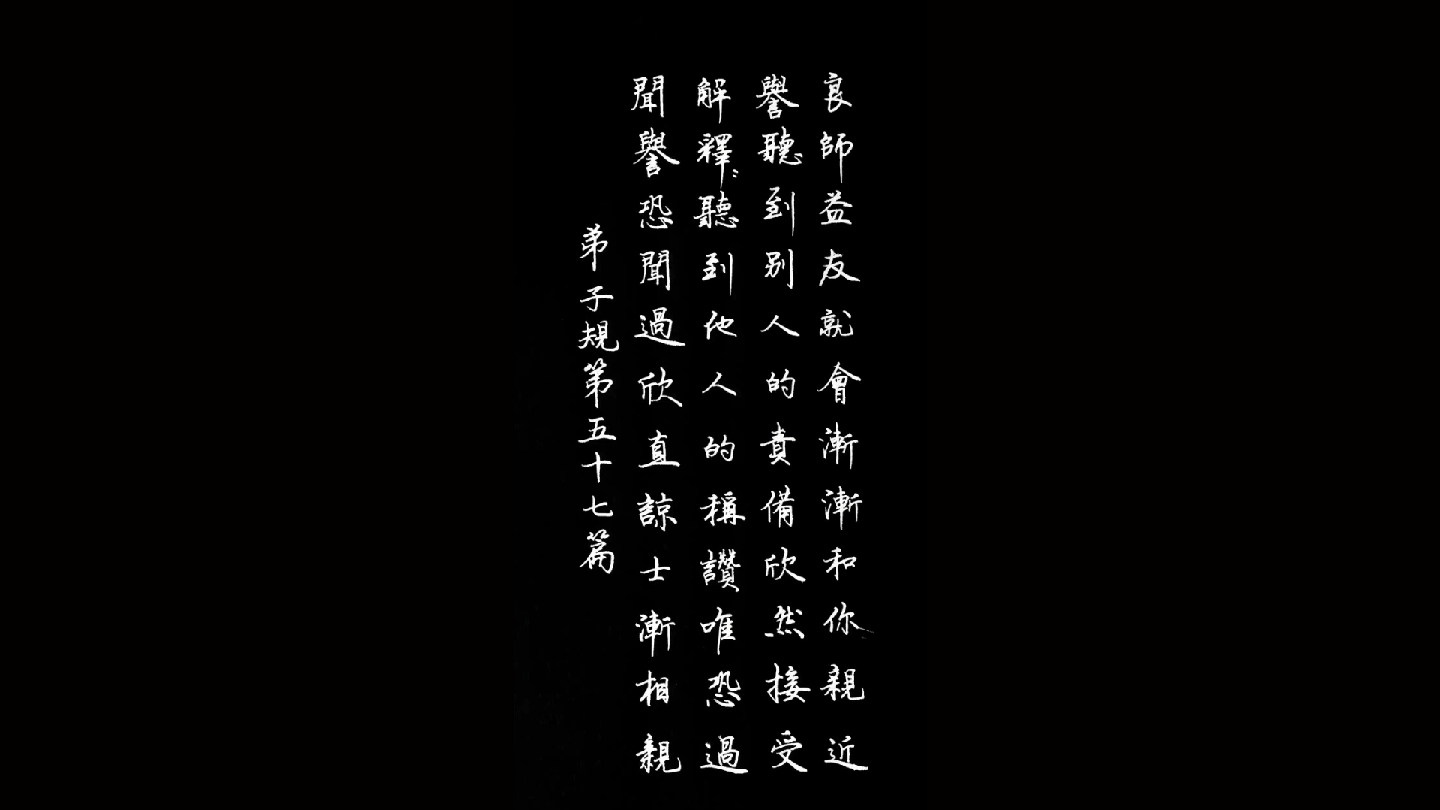 弟子規第五十七篇
聞譽恐聞過欣直諒士漸相親
解釋：聽到他人的稱讚唯恐過
譽聽到別人的責備欣然接受
良師益友就會漸漸和你親近